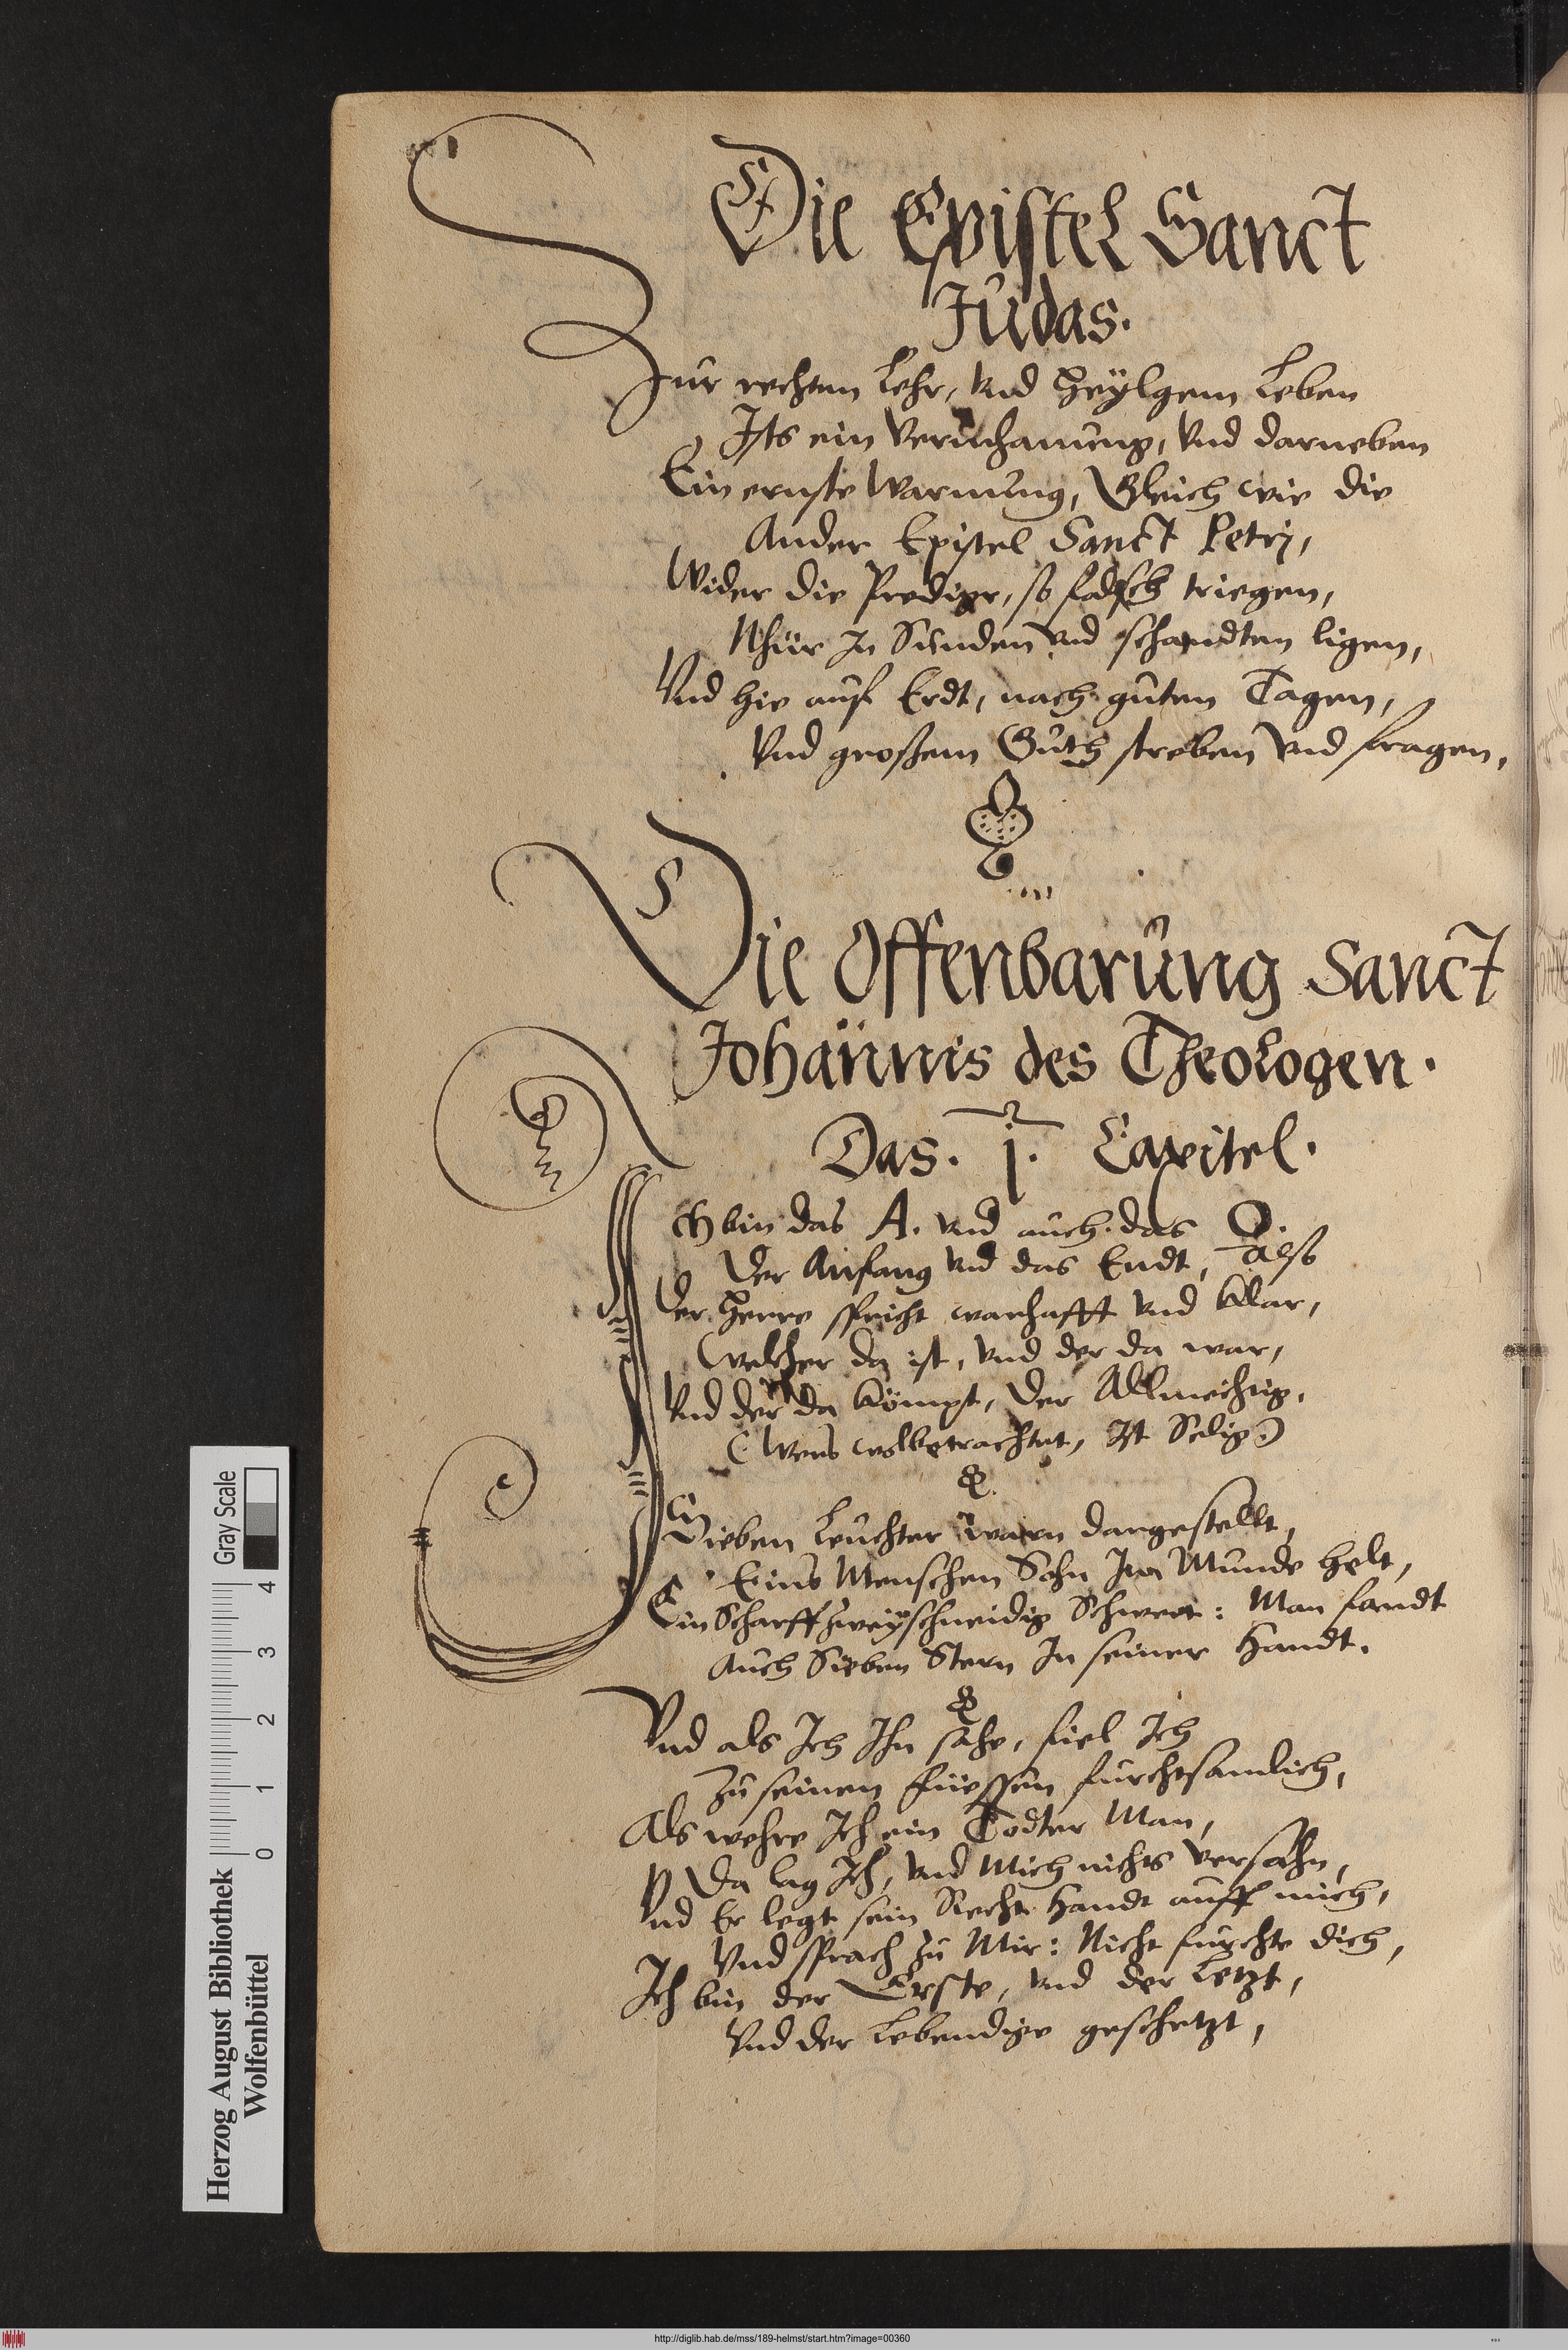 Die Epistel Sanct
Judas.
Zur rechten Lehr, Vnd Heylgem Leben
Ists ein Vermahnung, Vnd darneben
Ein ernste Warnung, Gleich wie die
Ander Epistel Sanct Petrj,
Wider die Prediger, so falsch triegen,
Nhür In Sünden Vnd schandten ligen,
Vnd hie auf Erdt, nach guten Tagen,
Vnd großem Guth streben Vnd fragen,
Die Offenbarung Sanct
Johannis des Theologen.
Das. 1. Capitel.
Ich bin das A. Vnd auch das O.
Der Anfang Vnd das Endt, Also
Der Herre spricht warhafft Vnd klar,
Welcher da ist, Vnd der da war,
Vnd der da kömpt, der Allmechtig,
(Wers wolbetrachtet, Ist Selig)
Sieben Leuchter warn dargestellt,
Eins Menschen Sohn Im Munde helt,
Ein Scharff Zweyschneidig Schwert: Man fandt
Auch Sieben Stern In seiner Handt.
Vnd als Ich Ihn sahe, fiel Ich
Zu seinen füessen furchtsamlich,
Als wehre Ich ein Todter Man,
Da lag Ich, Vnd Mich nichts Versahn,
Vnd Er legt sein Recht Handt auff mich,
Vnd sprach zu Mir: Nicht furchte dich,
Ich bin der Erste, Vnd der Letzt,
Vnd der Lebendige geschetzt,
Herzog August Bibliothek
Wolfenbüttel
Gray Scale
0 1 2 3 4
http://diglib.hab.de/mss/189-helmst/start.htm?image=00360